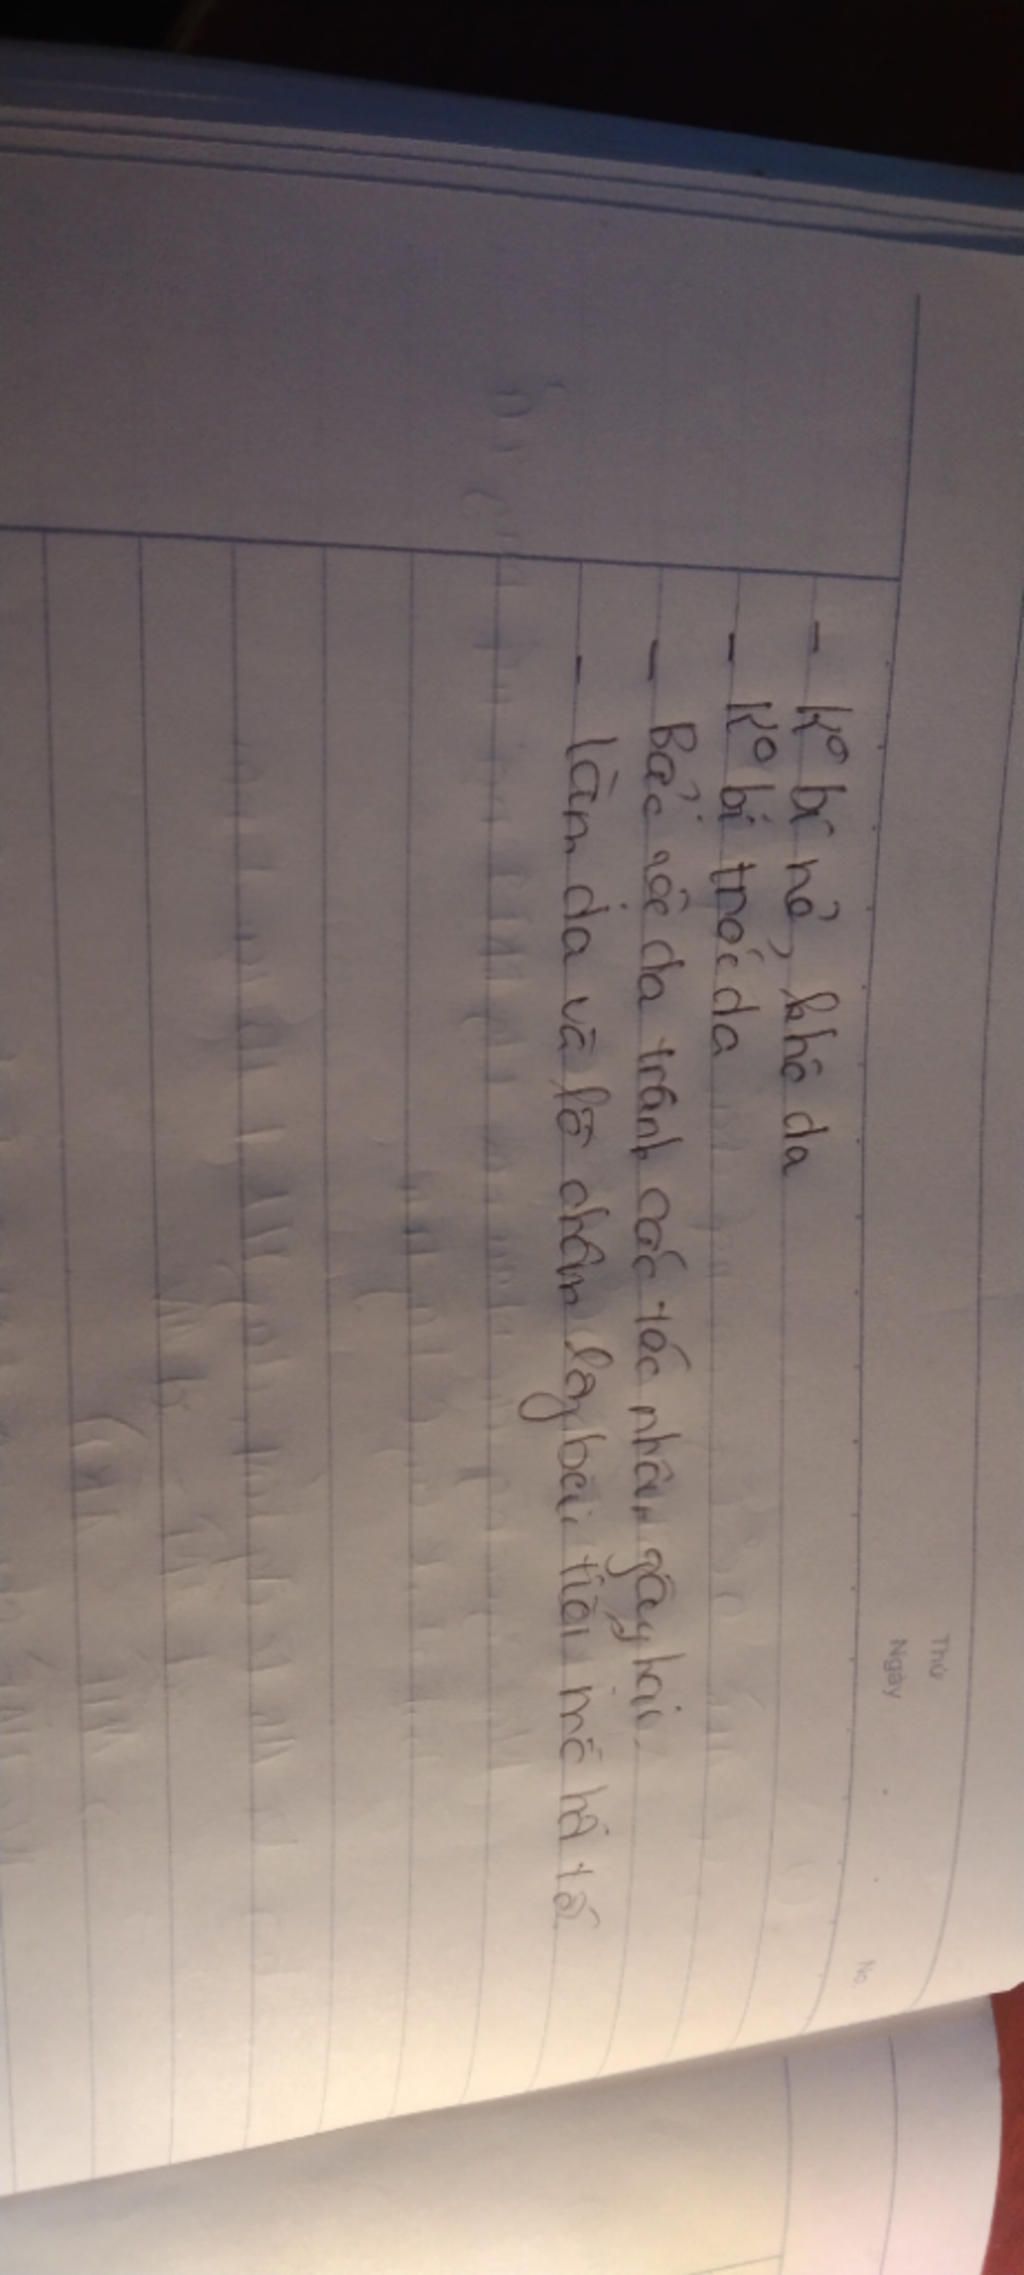 Thứ
Ngày
No.
- Ko bị nẻ, khô da
- Ko bị tróc da
- Bảo vệ da tránh các tác nhân gây hại.
- làm da và lỗ chân lông bài tiết mồ hôi tố